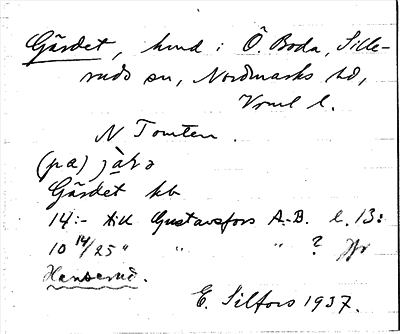 Gärdet, hmd i Ö. Boda, Sille-
ruds sn, Nordmarks hd,
Vrml l.
N Tomten.
(pa) jàɫə
Gärdet kb
14:- till Gustavsfors A.-B. l. 13:
10 14/25 " " " ? Jfr
Hanserud.
E. Silfors 1937.